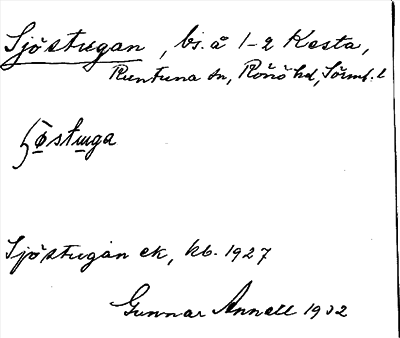 Sjöstugan, bs. å 1-2 Kesta,
Runtuna sn, Rönö hd, Södml. l
ʃö̱stu̱ga
Sjöstugan ek, kb. 1927
Gunnar Annell 1932